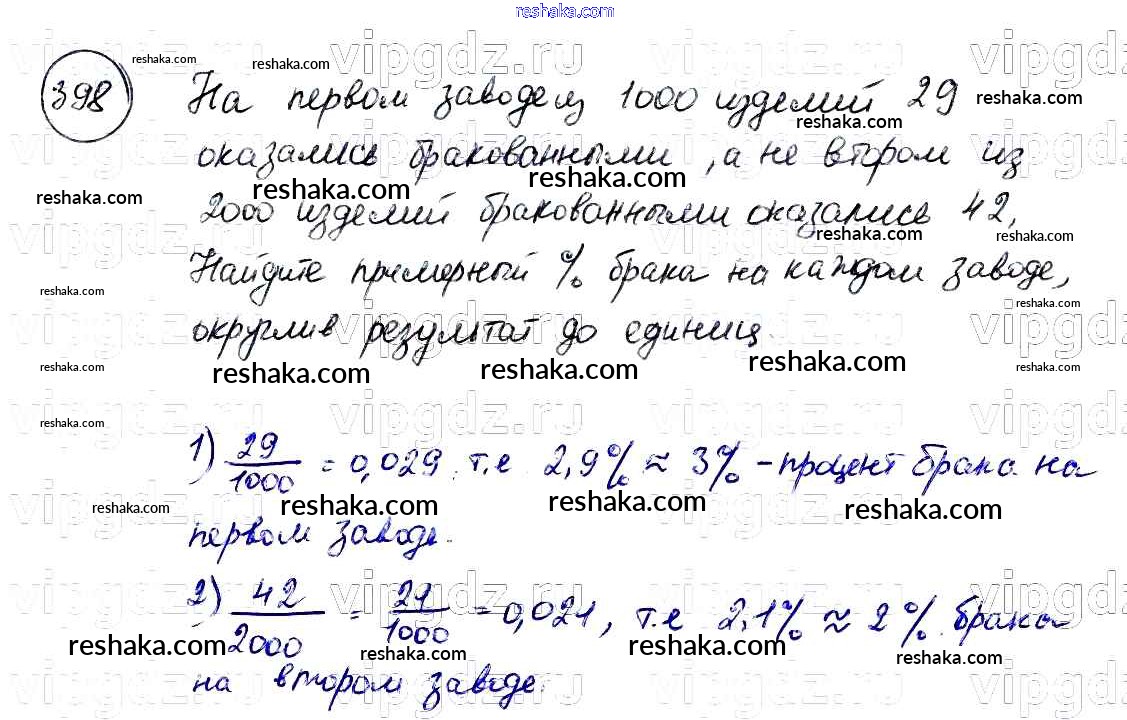 reshaka.com
398
На первом заводе из 1000 изделий 29
оказались бракованными, а не втором из
2000 изделий бракованными оказались 42,
Найдите примерный % брака на каждом заводе,
округлив результат до единиц.
1) 29/1000 = 0,029 т.е 2,9% ≈ 3% - процент брака на
первом заводе.
2) 42/2000 = 21/1000 = 0,021, т.е 2,1% ≈ 2% брака
на втором заводе.